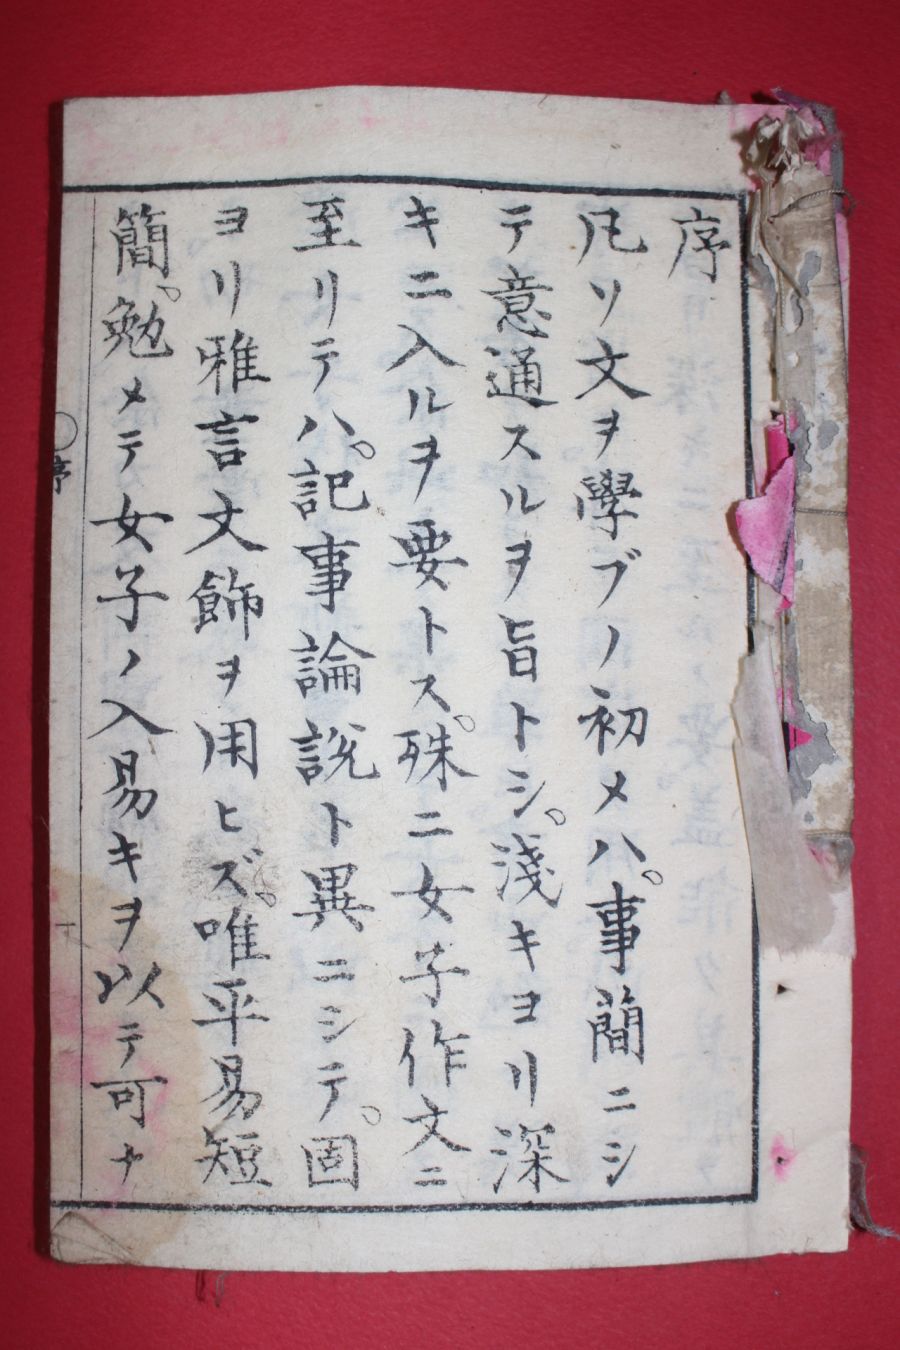 序
凡ソ文ヲ學ブノ初メハ。事簡ニシ
テ意通スルヲ旨トシ。淺キヨリ深
キニ入ルヲ要トス。殊ニ女子作文ニ
至リテハ。記事論説ト異ニシテ。固
ヨリ雅言文飾ヲ用ヒズ。唯平易短
簡。勉メテ女子ノ入易キヲ以テ可ナ
○序